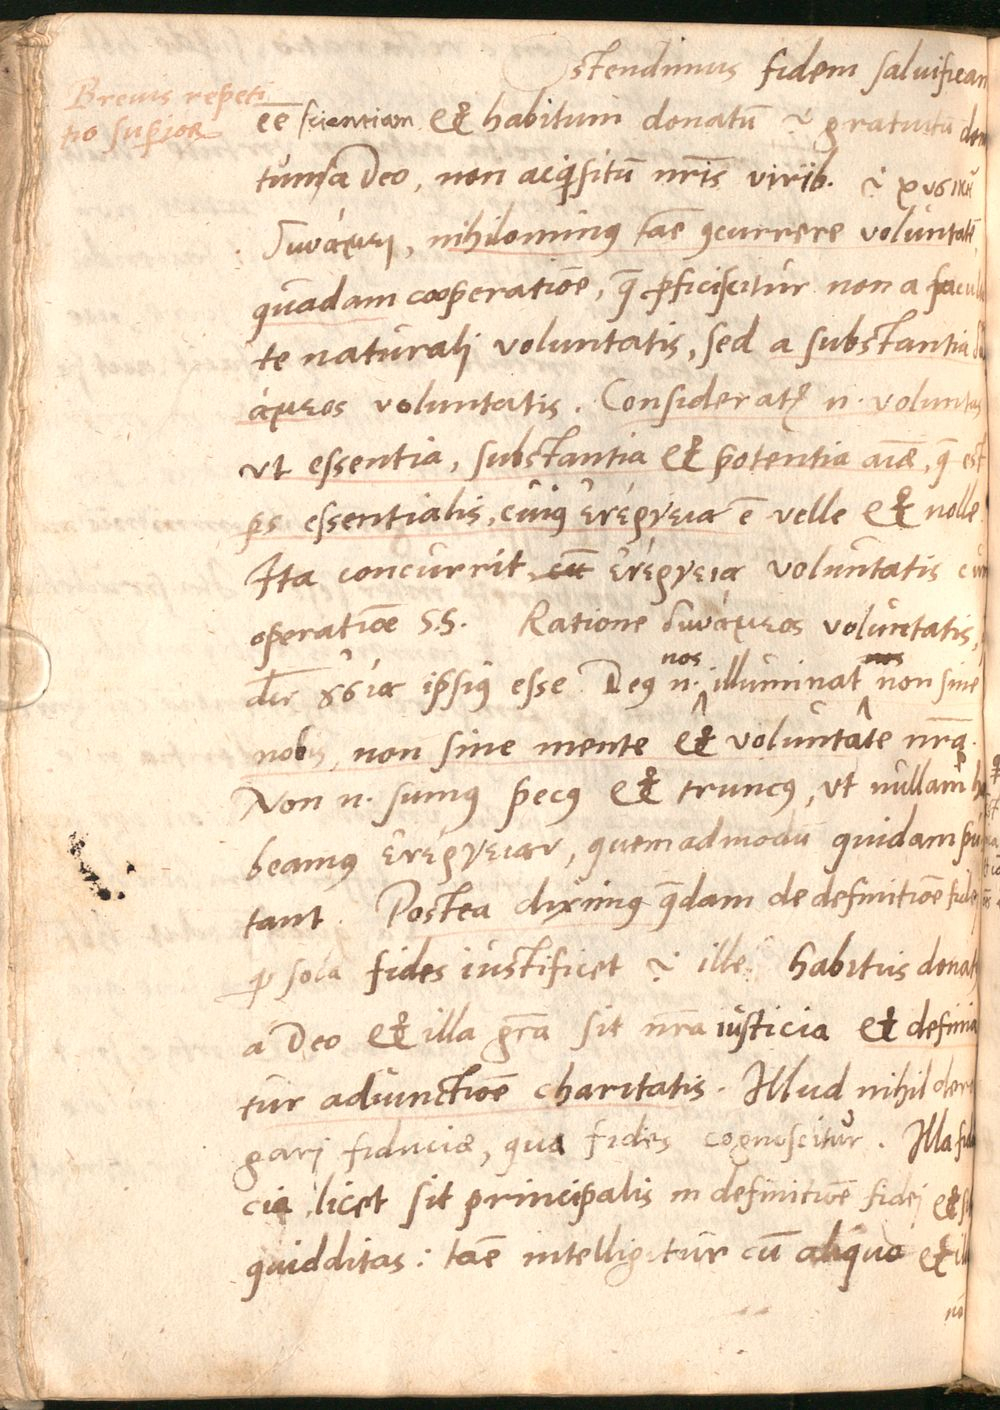 Brevis repeti
tio superior
Ostendimus fidem salvifican
eē scientiam et habitum donatū
tum a Deo, non acqsitū nr̄is viribꝫ.
δυνάμει, nihilominꝰ tam̄e ꝯcurrere voluntatē
quadam cooperatiōe, q̄ ꝓficiscitur non a facul
te naturali voluntatis, sed a substantia δυ
άμεος voluntatis. Considerat᷑ n. voluntas
ut essentia, substantia et potentia aīæ, q̄ est
ps essentialis, cuius ἐνέργεια ē velle et nolle
Ita concurrit ἐνέργεια voluntatis cum
operatiōe S.S. Ratione δυνάμεος voluntatis,
dr̄ ὀσία ipsiꝰ esse. Deꝰ n. nos illuminat non sine
nobis, non sine mente et voluntate nr̄a.
Non n. sumꝰ pecꝰ et truncꝰ, ut nullam ha
beamꝰ ἐνέργειαν, quemadmodū quidam pu
tant. Postea diximꝰ q̄dam de definitiōe fidei
ꝙ sola fides iustificet ille habitus donatꝰ
a Deo et illa gr̄a sit nr̄a iusticia et definia
tur adiunctiōe charitatis. Illud nihil dero
gari fiduciæ, qua fides cognoscitur. Illa fidu
cia licet sit principalis in definitiōe fidei et
quidditas: tam̄e intelligitur cū aliquo et
nō